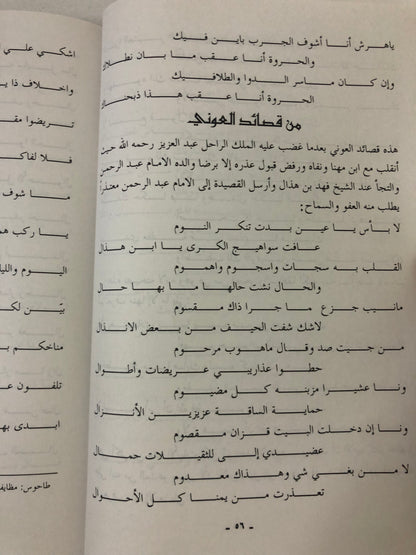 ياهرش أنا أشوف الجرب باين فيك
والحروة أنا عقب ما بان نطلاك
وإن كان ماسر الدوا والطلافيك
الحروة أنا عقب هذا ذبحناك
من قصائد العوني
هذه قصائد العوني بعدما غضب عليه الملك الراحل عبد العزيز رحمه الله حيث
أنقلب مع ابن مهنا ونفاه ورفض قبول عذره إلا برضا والده الامام عبد الرحمن
والتجأ عند الشيخ فهد بن هذال وأرسل القصيدة إلى الامام عبد الرحمن معتذراً
يطلب منه العفو والسماح:
لا بأس يا عين بدت تنكر النوم
عافت سواهيج الكرى يا ابن هذال
القلب به سجات واسجوم واهموم
والحال نشت حالها ما بها حال
مانيب جزع ما جرا ذاك مقسوم
لاشك شفت الحيف من بعض الانذال
من جيت صد وقال ماهوب مرحوم
حطوا عذاريبي عريضات وأطوال
ونا عشيرا مزبنه كل مضيوم
حماية الساقة عزيزين الأنزال
ونا إن دخلت البيت قزان مقصوم
عضيدي إلى للثقيلات حمال
لا من بغى شي وهذاك معدوم
تعذرت من يمنا كل الأحوال
- ٥٦ -
اشكي علي
واخلاف ذا
تريضوا
فلا لفاك
ما شوف
يا ركب
اليوم والليا
بيّن لك
مناخكم
تلفون
ابدى به
طاحوس: